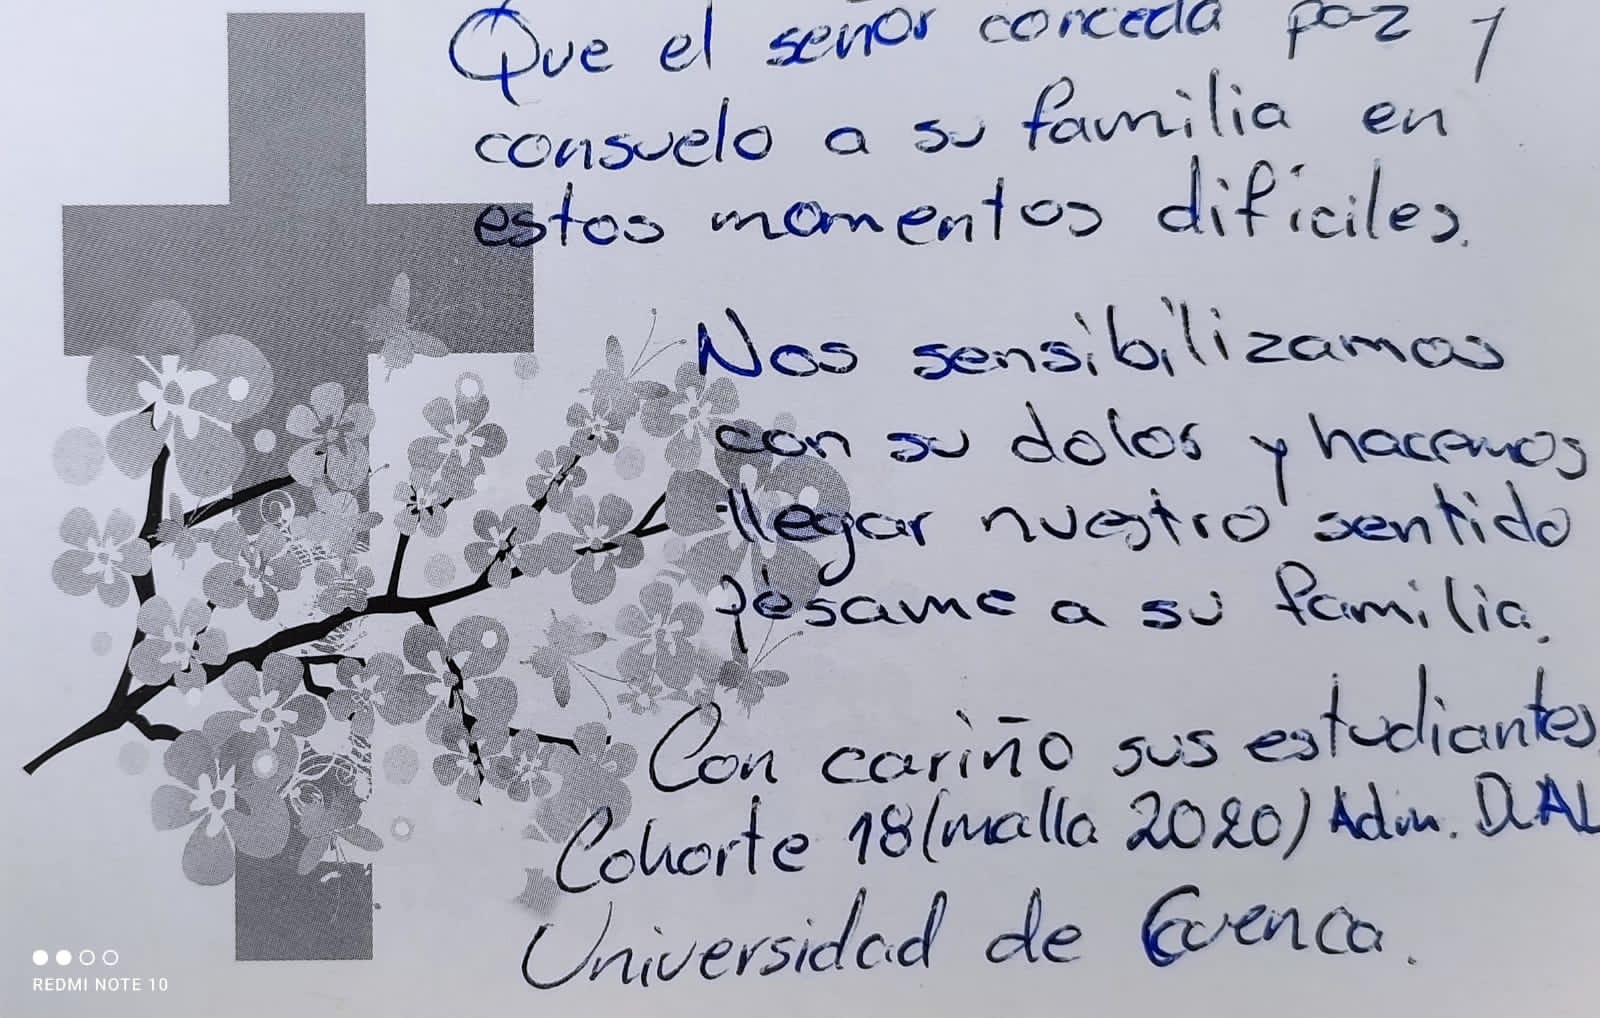 Que el señor conceda paz y
consuelo a su familia en
estos momentos difíciles.
Nos sensibilizamos
con su dolor y hacemos
llegar nuestro sentido
pésame a su familia.
Con cariño sus estudiantes
Cohorte 18 (malla 2020) Adm. DUAL
Universidad de Cuenca.
REDMI NOTE 10